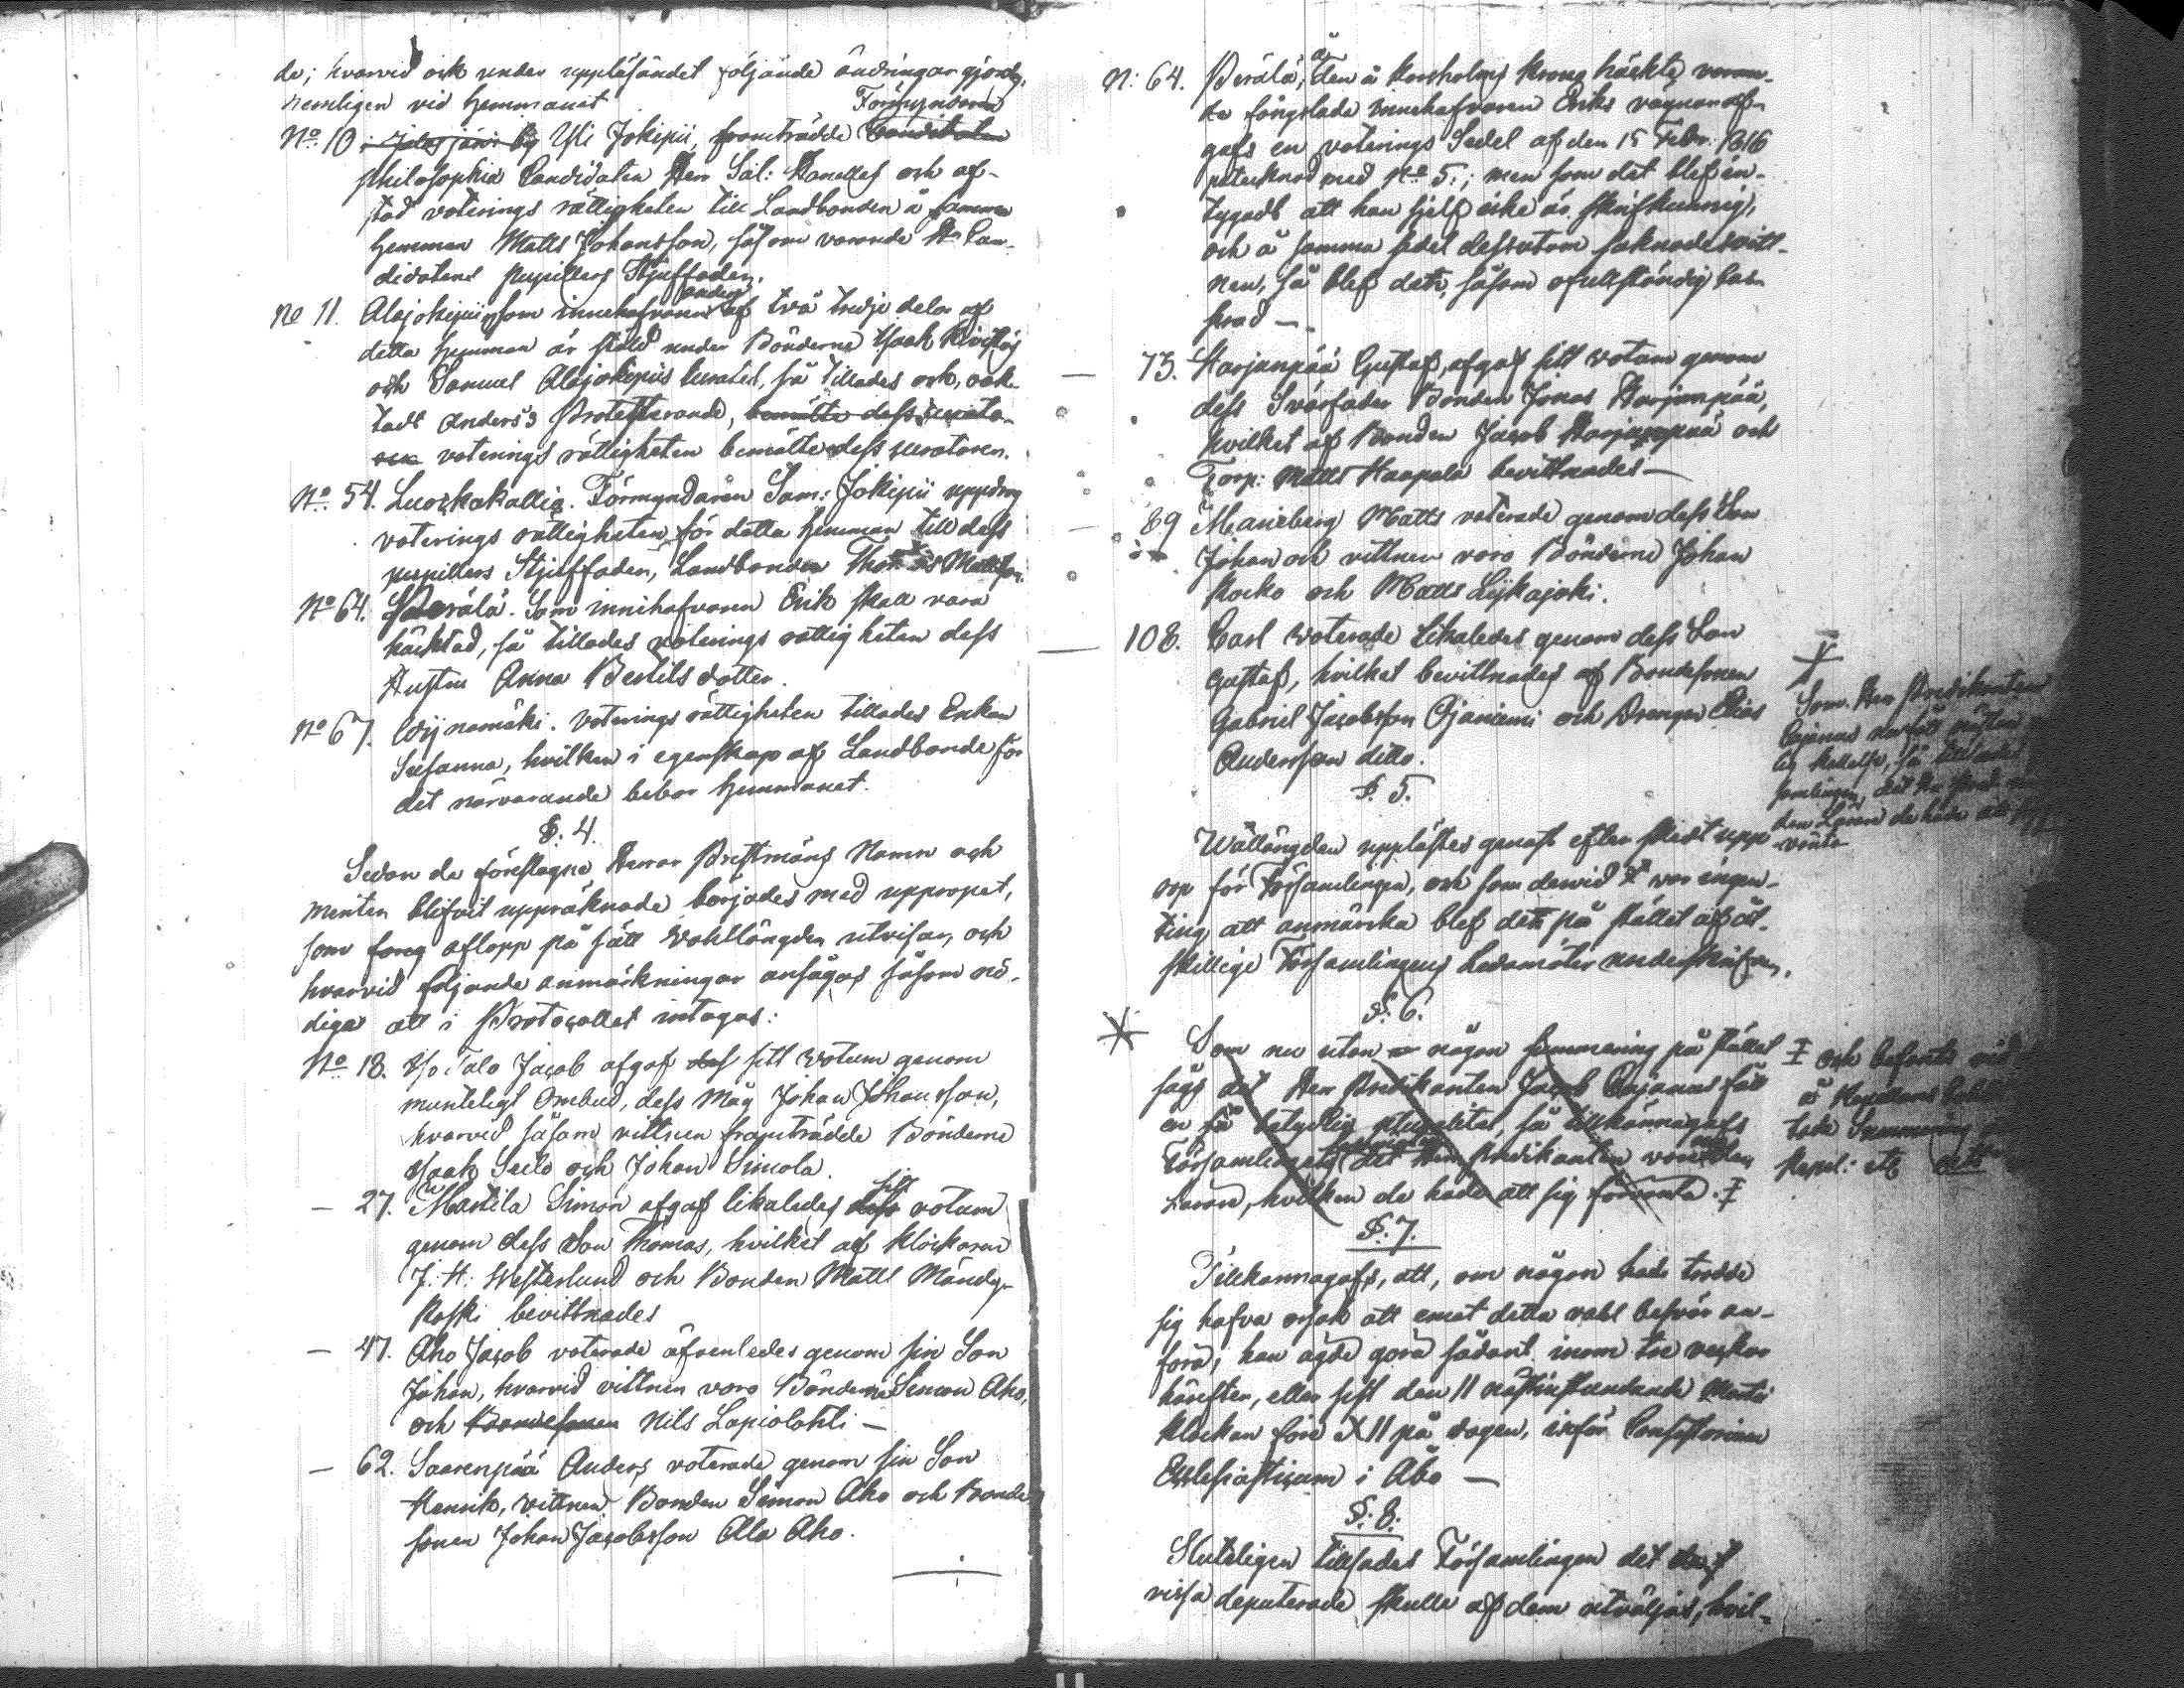 de; hvarvid ock under uppläsandet följande ändringar gjordes,
nemligen vid Hemmanet Förmyndaren
No 10. Jalasjärvi by Yli Jokipii, framträdde Candidaten
philosophiæ Candidaten Herr Sal: Hanelles och af-
stod voterings rättigheten till Landbonden å samma
Hemman Matts Johansson, såsom varande Hr Can-
didatens pupillers Stjuffader.
No 11. Alajokipii, som innehafvaren Anders af två tredje delar af
detta Hemman är ställd under Bönderne Isaak
och Samuel Alajokipiis curatel, så tillades och, oak-
tadt Anders's Protesterande, bemälte dess curato-
rer voterings rättigheten bemälte dess curatorer.
No 54. Luopakallio. Förmyndaren Sam: Jokipii uppdrog
voterings rättigheten för detta Hemman till dess
pupillers Stjuffader, Landbonden Thomas Mattsson.
No 64. Perälä. Som innehafvaren Erik skall vara
häcktad, så tillades voterings rättigheten dess
Hustru Anna Bertils dotter.
No 67. Wynamäki. Voterings rättigheten tillades Enkan
Susanna, hvilken i egenskap af Landbonde för
det närvarande bebor Hemmanet.
§. 4.
Sedan de föreslagne Herrar Prestmäns Namn och
meriter blifvit uppräknade börjades med uppropet,
som foreg aflopp på sätt Wahllängden utvisar, och
hvarvid följande anmärkningar ansågos såsom nö-
diga att i Protocollet intagas:
No 18. Iso Talo Jacob afgaf des sitt Votum genom
munteligt Ombud, dess Måg Johan Johansson,
hvarvid såsom vittnen framträdde Bönderne
Isaak Seilo och Johan Simola.
— 27. Martila Simon afgaf likaledes dess sitt votum
genom dess Son Thomas, hvilket af Klockaren
J. H. Westerlund och Bonden Matts Mändy-
koski bevittnades
— 47. Aho Jacob voterade äfvenledes genom sin Son
Johan, hvarvid vittnen voro Bönderne Simon Aho,
och Bondesonen Nils Lapiolahti —
— 62. Saarenpää Anders voterade genom sin Son
Henrik, vittnen Bonden Simon Aho och Bonde
sonen Johan Jacobsson Ala Aho.
N: 64. Perälä, å den å Korsholms Krono häckte varan-
de fängslade innehafvaren Eriks vägnar af-
gafs en voterings Sedel af den 15 Febr. 1816
utecknad med No 5.; men som det blef in-
tygadt att han sjelf icke är skrifkunnig,
och å samma sedel dessutom saknades vitt-
nen, så blef den, såsom ofullständig cas-
serad —
— 73. Harjanpää Gustaf, afgaf sitt votum genom
dess Svärfader Bonden Jonas Harjanpää,
hvilket af Bonden Jacob Harjanpää och
Torp: Matts Haapala bevittnades —
— 89 Maneberg Matts voterade genom dess Son
Johan och vittnen voro Bönderne Johan
Kocko och Matts Lijkajoki.
— 108. Carl voterade likaledes genom dess Son
Gustaf, hvilket bevittnades af Bondesonen
Gabriel Jacobsson Ojaniemi och Drengen Elias
Andersson ditto.
§. 5.
Wallängden upplästes genast efter skedt upp
rop för Församlingen, och som dervid var ingen-
ting att anmärka blef den på stället af åt-
skillige Församlingens Ledamöter underskrifven.
Som Herr Predikanten
Cajanus
lig kallelse, så tillsades
den Läraren de hade att
vänta
§. 6.
Som nu utan någon summering på stället
sågs att Herr Predikanten Jacob Cajanus fått
en så betydlig pluralitet, så tillkännagafs
Församlingen det Herr Predikanten vore den
Läraren, hvilken de hade att sig förvänta.
och befants vid
å Kapellans
summering
Kapel: etc
§. 7.
Tillkännagafs, att, om någon hade trodde
sig hafva orsak att emot detta vahl besvär an-
föra, han ägde göra sådant inom tre veckor
härefter, eller sist den 11 nästinstundande Martii
klockan före XII på dagen, inför Consistorium
Ecclesiasticum i Åbo —
§. 8.
Sluteligen tillsades Församlingen det
vissa deputerade skulle af dem utväljas, hvil-